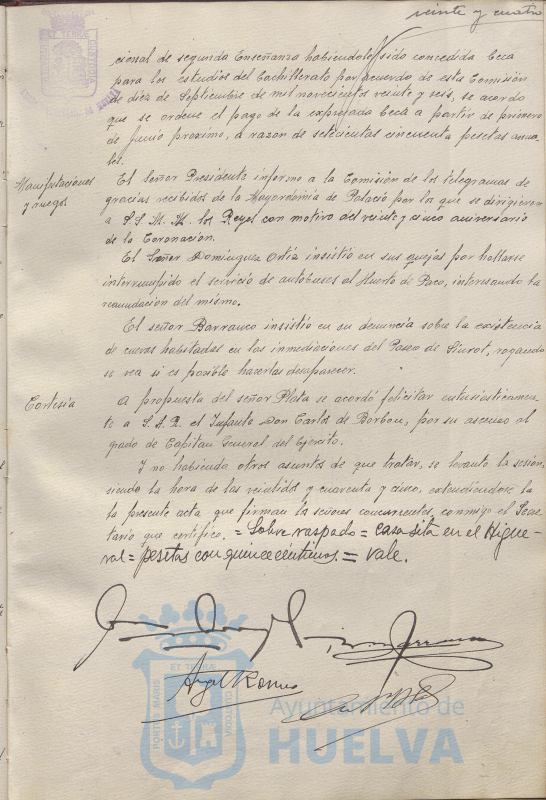 veinte y cuatro
cional de segunda Enseñanza habiéndole sido concedida beca
para los estudios del Bachillerato por acuerdo de esta Comisión
de diez de Septiembre de mil novecientos veinte y seis, se acordo
que se ordene el pago de la expresada beca a partir de primero
de Junio proximo, a razon de setecientas cincuenta pesetas anua-
les.
Manifestaciones
y ruegos
El Señor Presidente informo a la Comisión de los telegramas de
gracias recibidos de la Mayordomia de Palacio por los que se dirigieron
a S.S. M.M. los Reyes con motivo del veinte y cinco aniversario
de la Coronación.
El Señor Dominguez Ortiz insistió en sus quejas por hallarse
interrumpido el servicio de autobuses al Huerto de Paco, interesando la
reanudacion del mismo.
El señor Barranco insistió en su denuncia sobre la existencia
de cuevas habitadas en las inmediaciones del Paseo de Siurot, rogando
se vea si es posible hacerlas desaparecer.
Cortesia
A propuesta del señor Plata se acordó felicitar entusiasticamen-
te a S.A.R. el Infante Don Carlos de Borbon, por su ascenso al
grado de Capitan General del Ejército.
Y no habiendo otros asuntos de que tratar, se levanto la sesion,
siendo la hora de las veintidos y cuarenta y cinco, extendiendose la
la presente acta que firman los señores concurrentes, conmigo el Secre-
tario que certifico. = Sobre raspado = casa sita en el Higue-
ral = pesetas con quince céntimos. = Vale.
Angel
ET TERRÆ
PORTUS MARIS
CUSTODIA
Ayuntamiento de
HUELVA